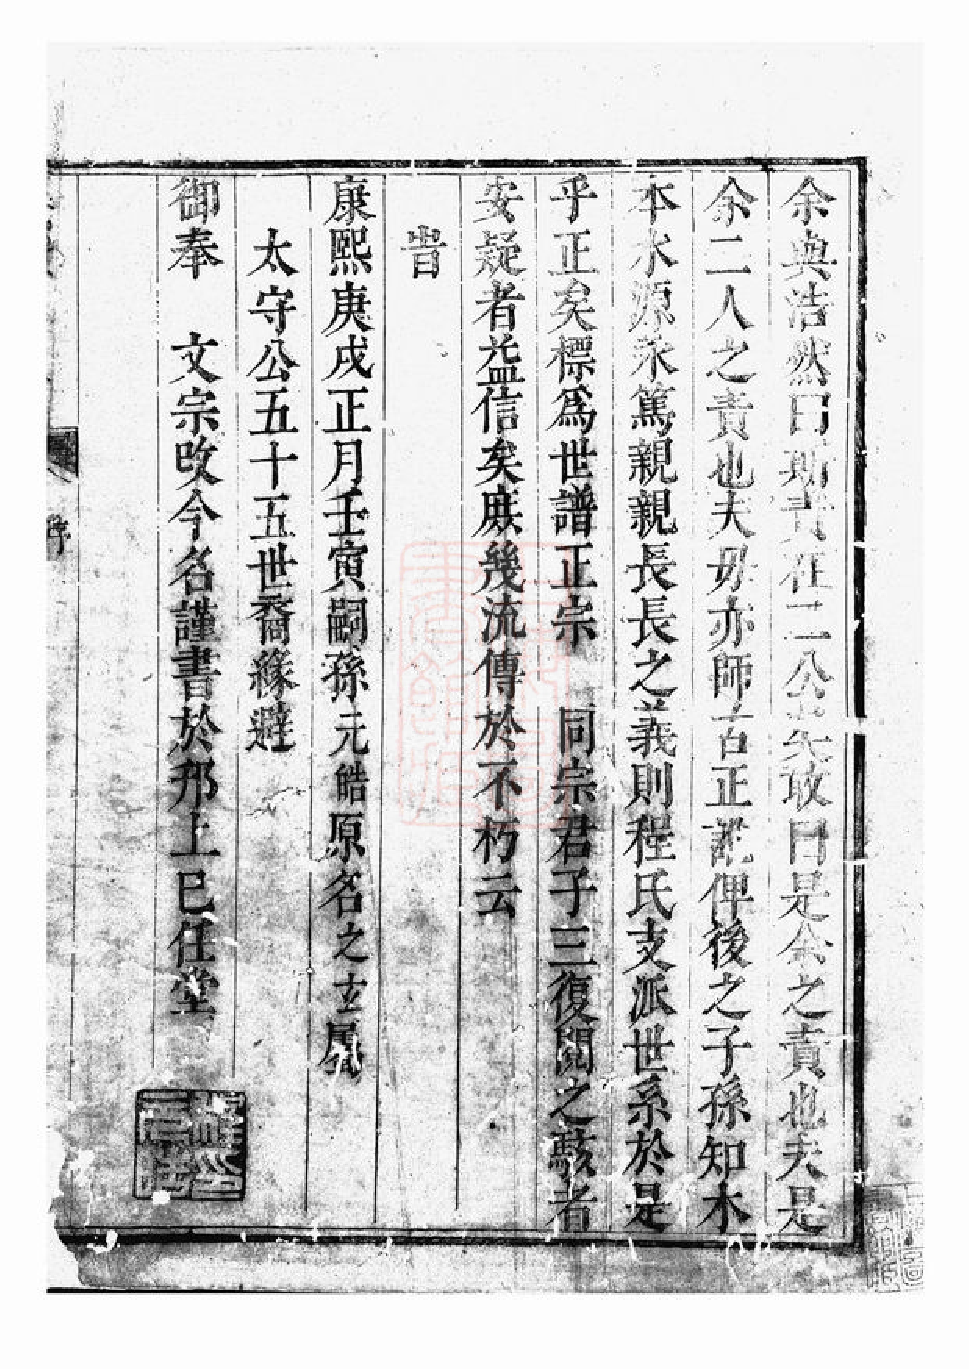 余與浩然曰斯責在二公老矣敢曰是余之責也夫是
余二人之責也夫毋亦師古正訛俾後之子孫知木
本水源永篤親親長長之義則程氏支派世系於是
乎正矣標爲世譜正宗 同宗君子三復閱之駭者
安疑者益信矣庶幾流傳於不朽云
旹
康熙庚戌正月壬寅嗣孫元皓原名之玄屬
太守公五十五世裔緣避
御奉 文宗改今名謹書於邗上巳任堂
序